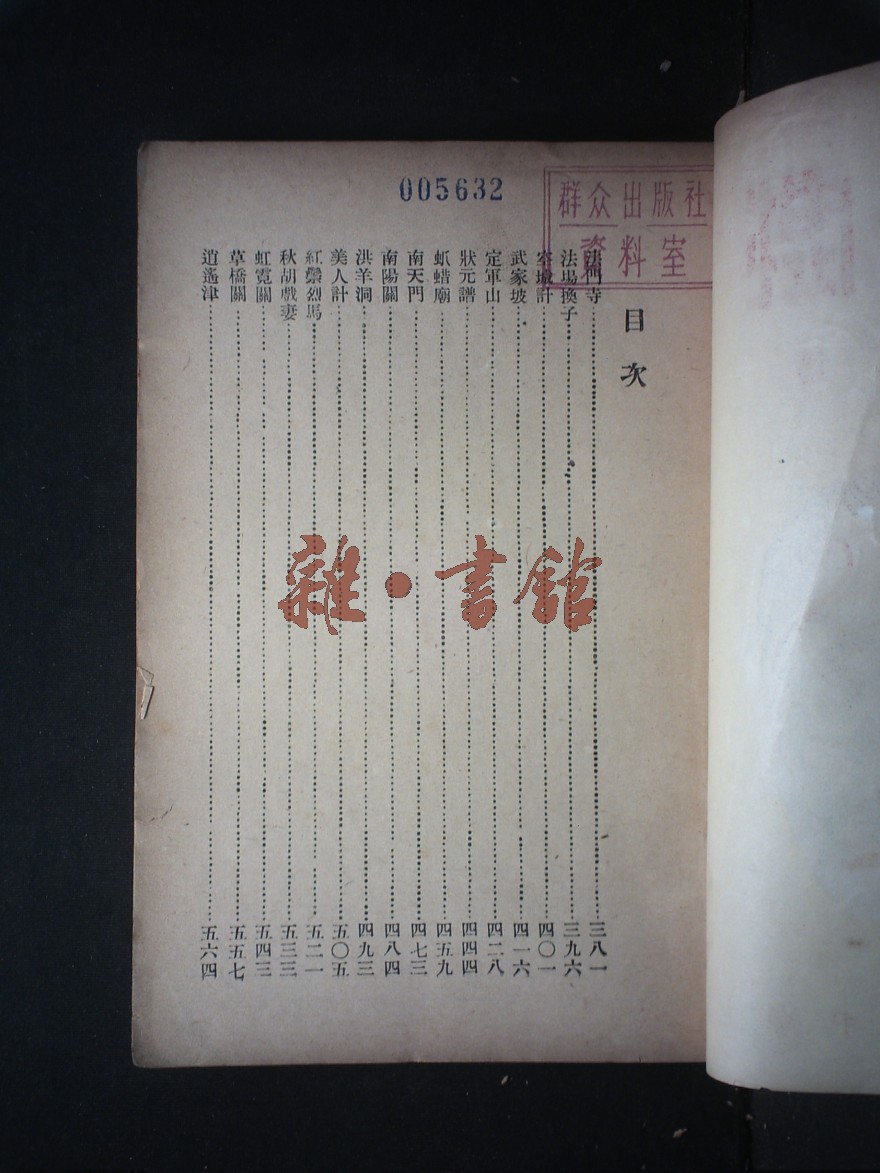 005632
群众出版社
資料室
目次
法門寺 三八一
法場換子 三九六
空城計 四〇一
武家坡 四一六
定軍山 四二八
狀元譜 四四四
虮蜡廟 四五九
南天門 四七三
南陽關 四八四
洪羊洞 四九三
美人計 五〇五
紅鬃烈馬 五二一
秋胡戲妻 五三三
虹霓關 五四三
草橋關 五五七
逍遙津 五六四
雜·書館